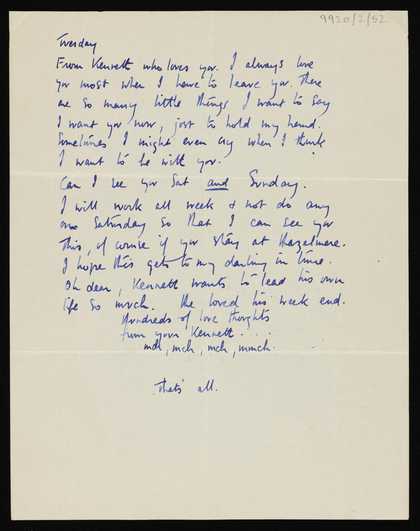 9920/2/52
Tuesday
From Kenneth who loves you. I always love
you most when I have to leave you. There
are so many little things I want to say
I want you now, just to hold my hand.
Sometimes I might even cry when I think
I want to be with you.
Can I see you Sat and Sunday.
I will work all week & not do any
on Saturday so that I can see you
This, of course if you stay at Hazelmere.
I hope this gets to my darling in time.
Oh dear, Kenneth wants to lead his own
life so much. He loved his week end.
Hundreds of love thoughts
from your Kenneth. . . .
mch, mch, mch, mmch.
Thats all.